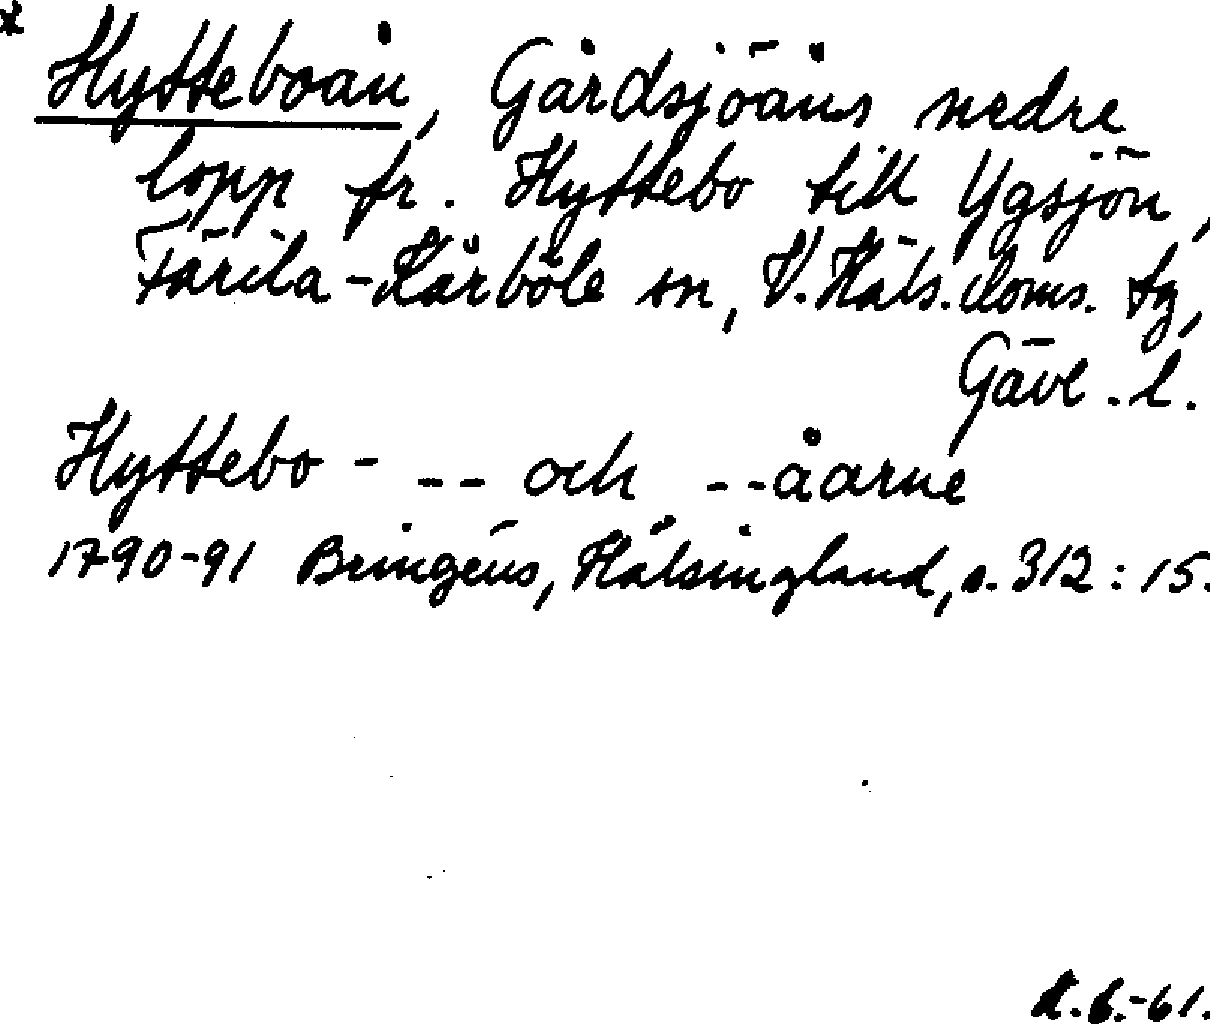 x
Hytteboån, Gårdsjöåns nedre
lopp fr. Hyttebo till Ygsjön,
Färila-Kårböle sn, V. Häls. doms. tg,
Gävl. l.
Hyttebo - -- och --åarne
1790-91 Bringéus, Hälsingland, s. 312:15.
61.